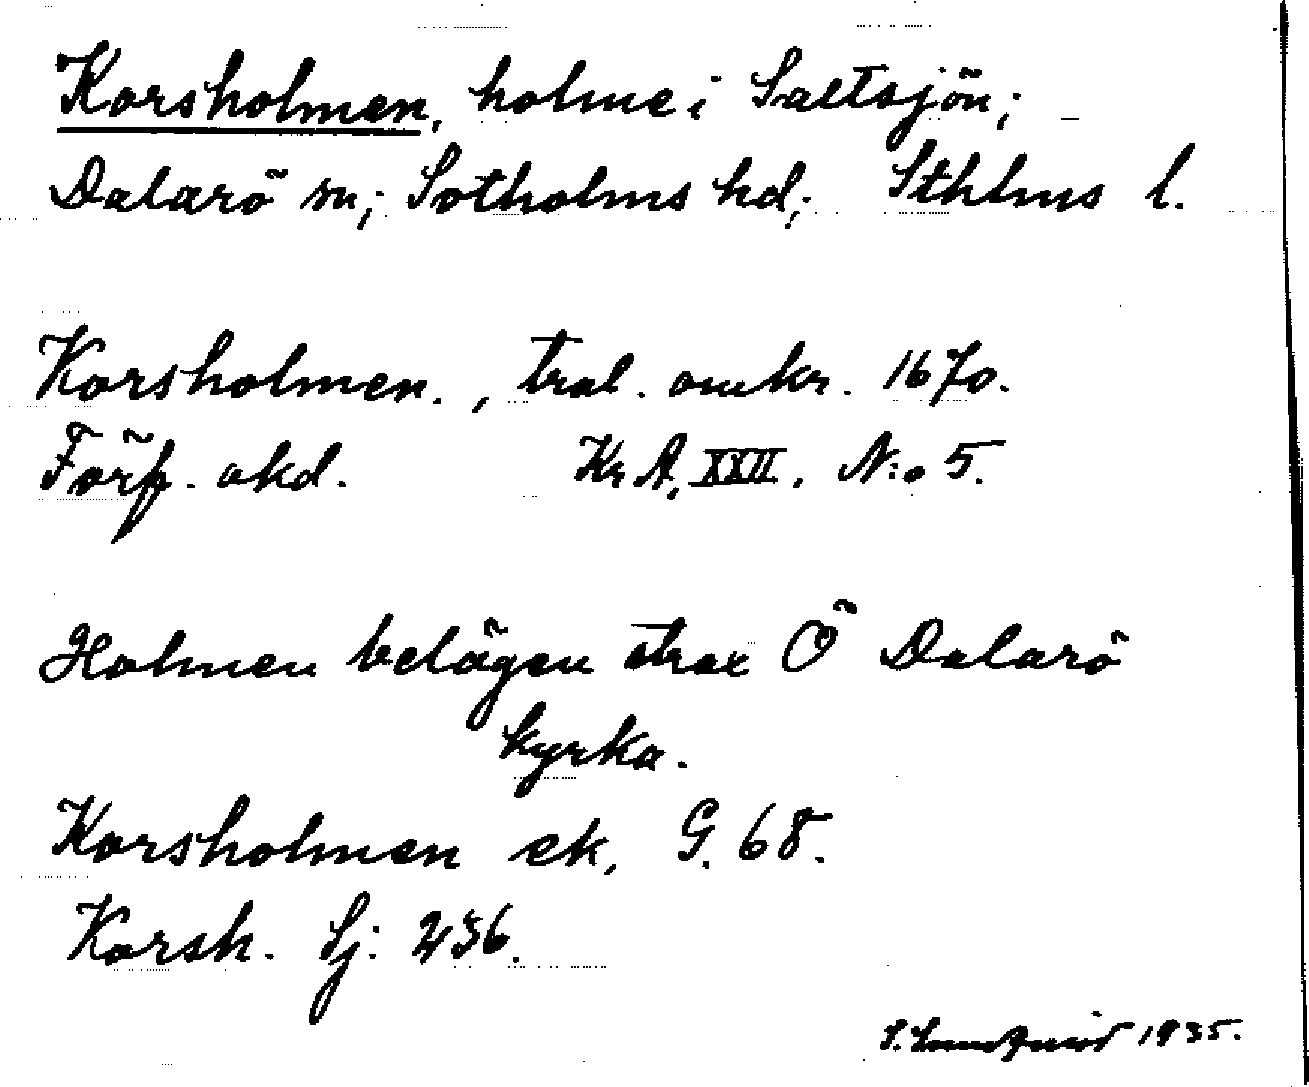 Korsholmen, holme i Saltsjön;
Dalarö sn; Sotholms hd; Sthlms l.
Korsholmen., tral. omkr. 1670.
Förf. okd. Kr A, XXII. N:o 5.
Holmen belägen strax Ö Dalarö
kyrka.
Korsholmen ek. G. 68.
Korsh. Sj: 236.
S. Lundqvist 1935.